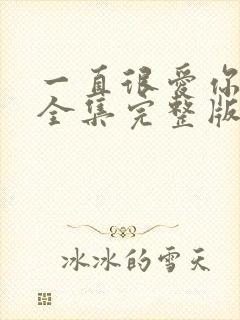 一直很爱你
全集完整版
冰冰的雪天